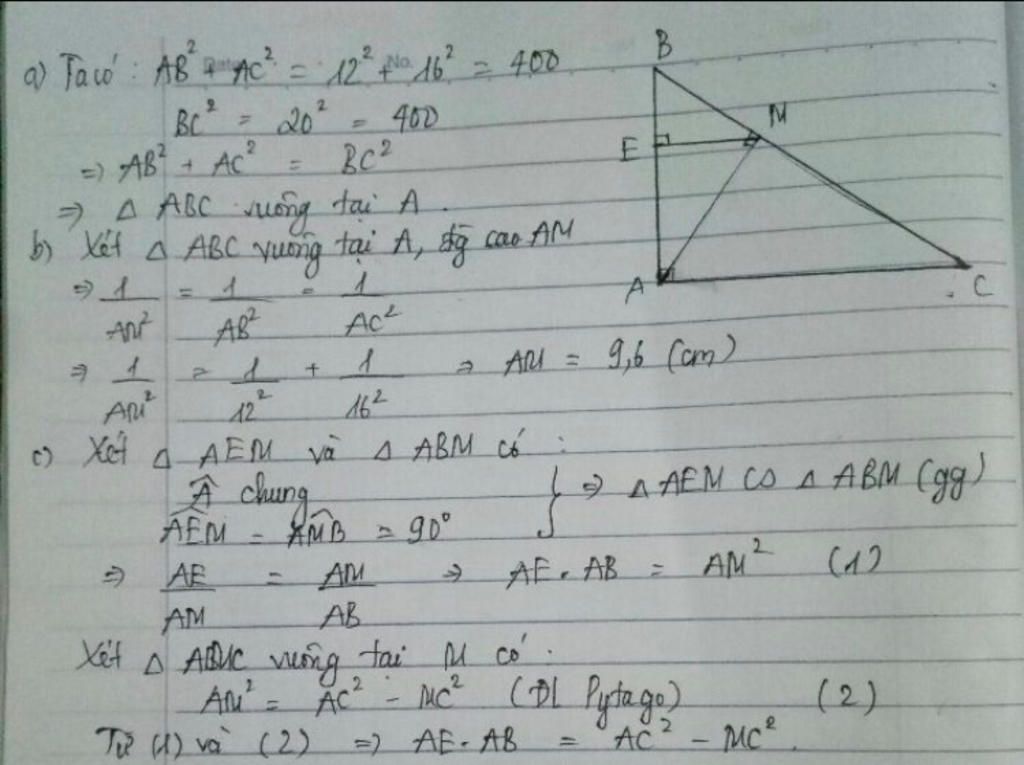 a) Ta có : AB² + AC² = 12² + 16² = 400
BC² = 20² = 400
=> AB² + AC² = BC²
=> Δ ABC vuông tại A.
b) Xét Δ ABC vuông tại A, đg cao AM
=> 1/AM² = 1/AB² = 1/AC²
=> 1/AM² = 1/12² + 1/16² => AM = 9,6 (cm)
c) Xét Δ AEM và Δ ABM có :
Â chung
AEM = AMB = 90° } => Δ AEM ∽ Δ ABM (gg)
=> AE/AM = AM/AB => AE . AB = AM² (1)
Xét Δ AMC vuông tại M có :
AM² = AC² - MC² (ĐL Pytago) (2)
Từ (1) và (2) => AE . AB = AC² - MC².
B
M
E
A
C
No.